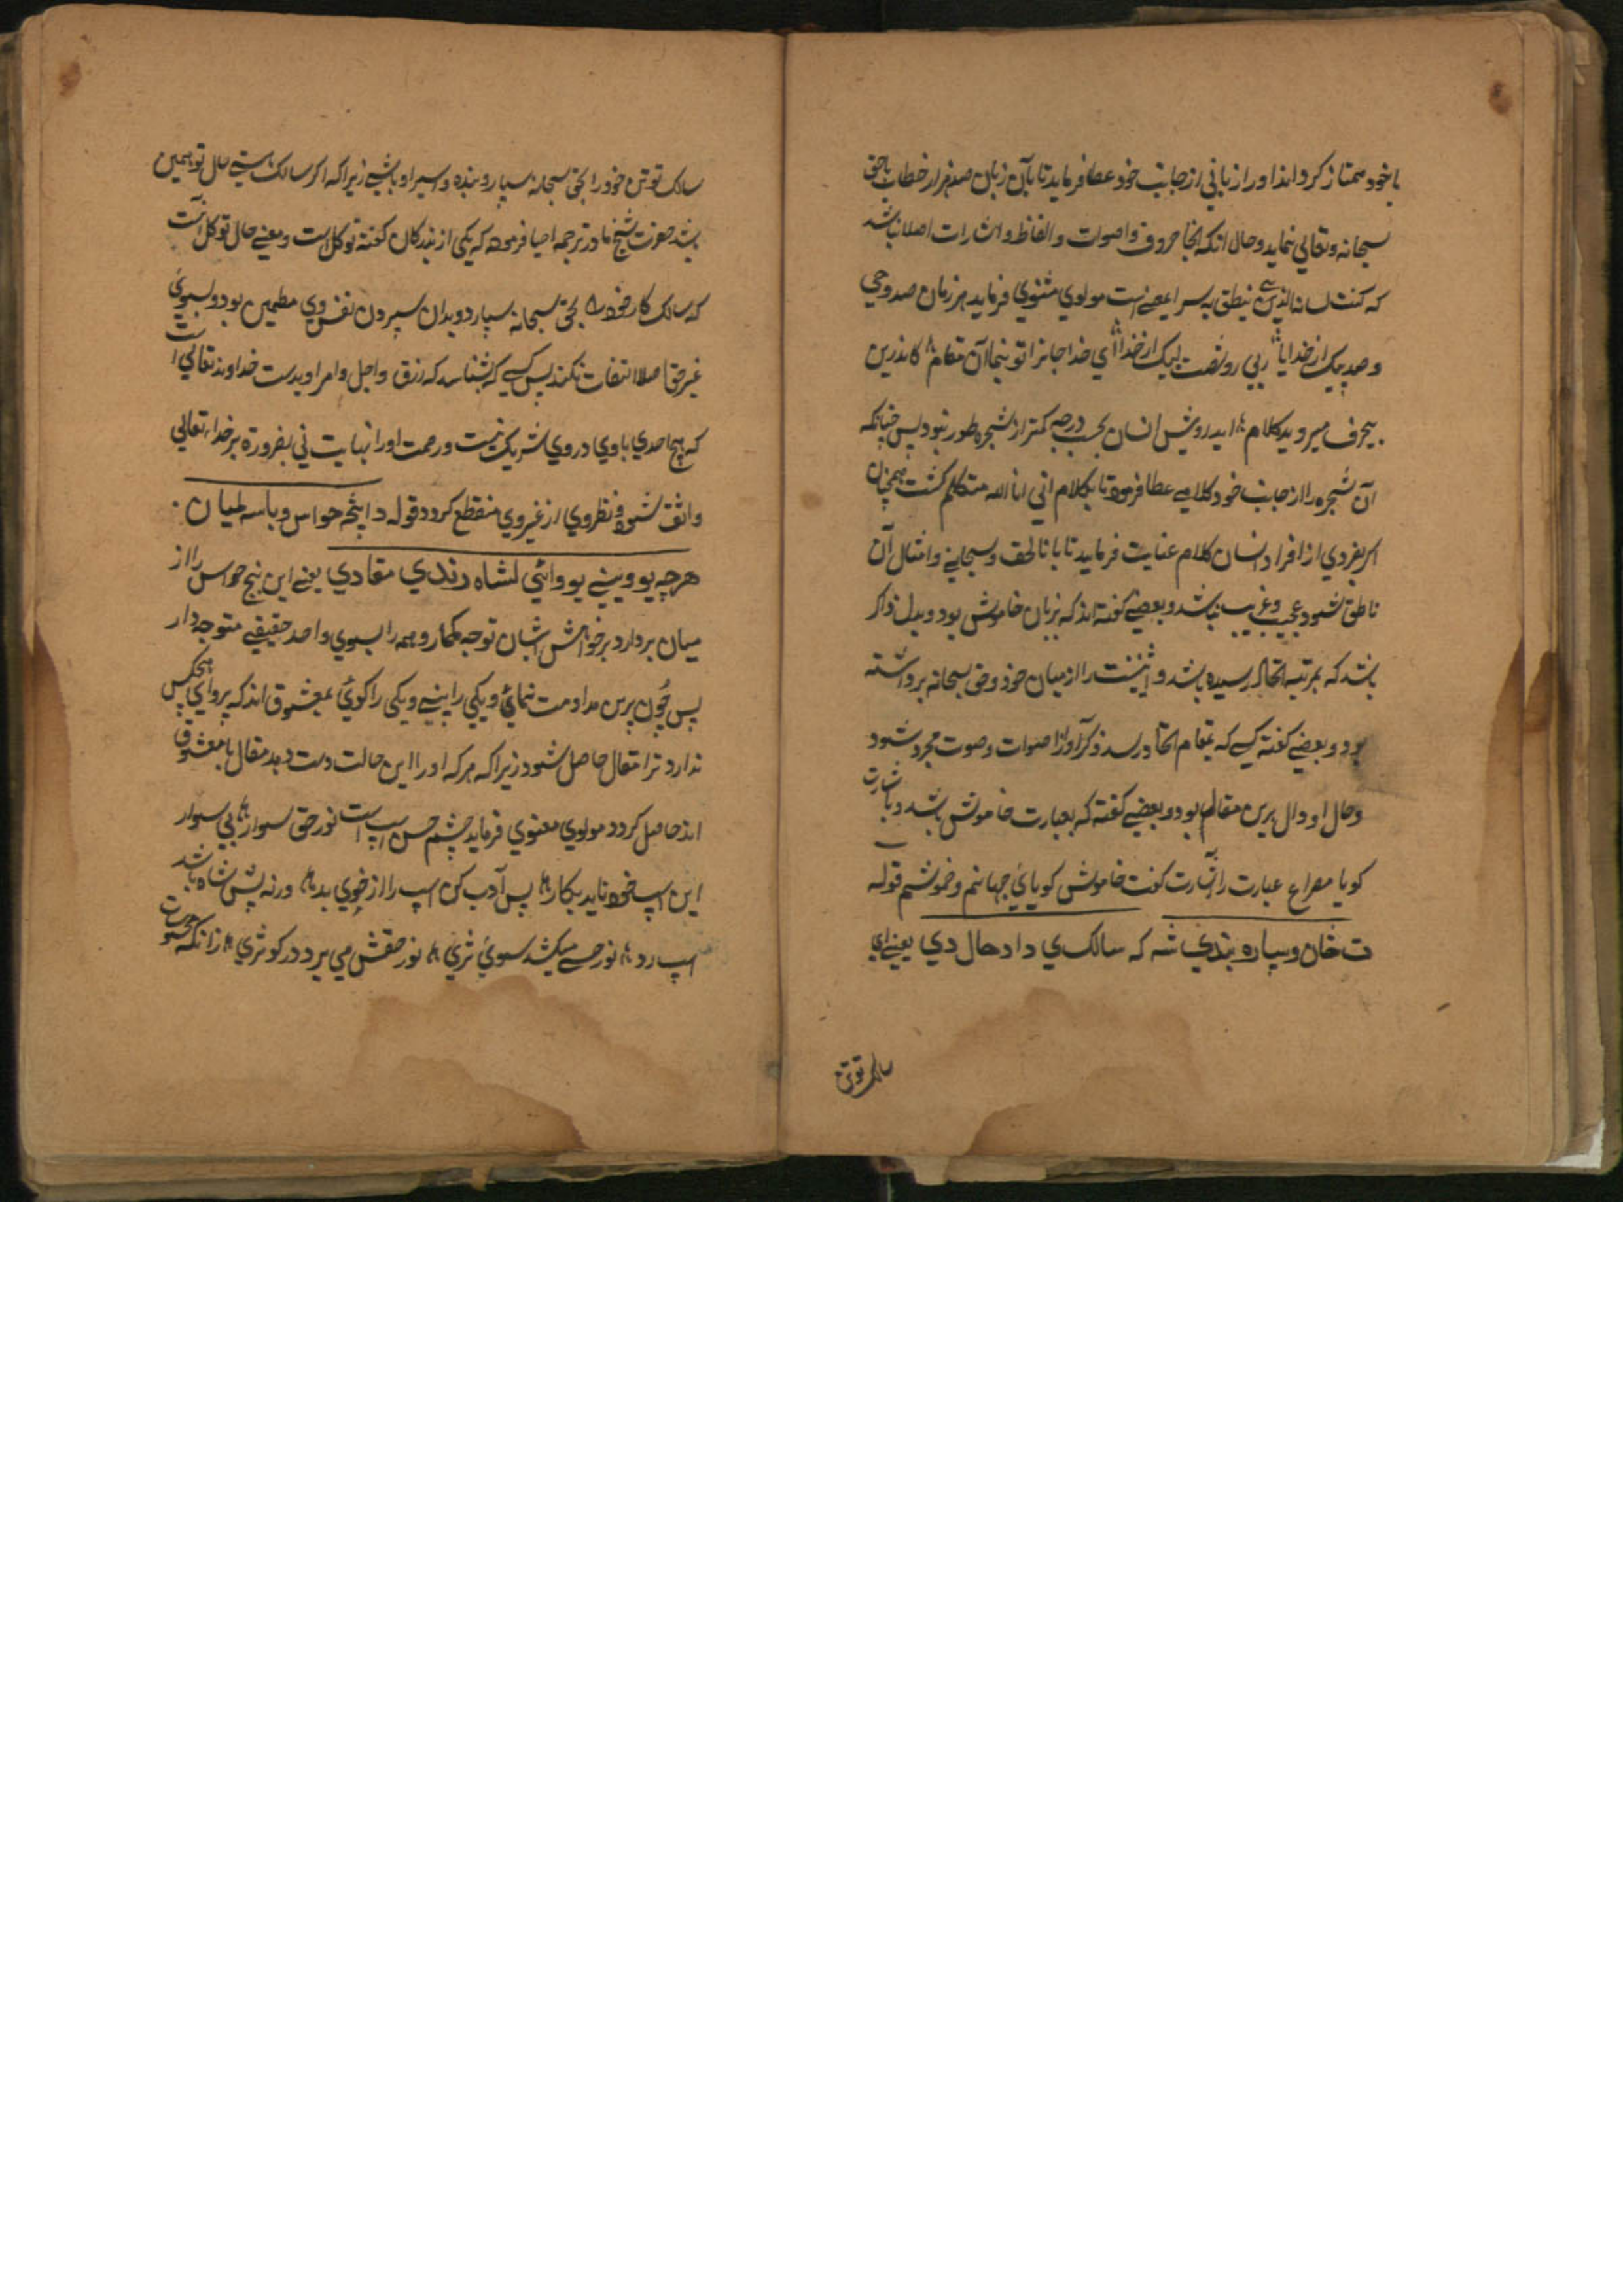 با خود ممتاز کرداند اورا زبانی از جانب خود عطا فرماید تا بآن زبان صد هزار خطاب باحق
سبحانه و تعالی نماید و حال آنکه آنجا حروف و اصوات و الفاظ و اشارات اصلا نباشد
که کنت لسانه الذی ینطق به سر این معنی است مولوی مثنوی فرماید هر زمان صد وحی
و صد پیک از خدایا ربی رو شصت لبیک از خدا ای خدا جانرا تو بنما آن مقام کاندرین
بیحرف میروید کلام ایدرویش انسان بحسب درجه کمتر از شجره طور نبود پس چنانکه
آن شجره را از جانب خود کلامی عطا فرمود تا بکلام انی انا الله متکلم گشت همچنان
اگر بفردی از افراد انسان کلام عنایت فرماید تا بانا الحق و سبحانی و امثال آن
ناطق شود عجیب و غریب نباشد و بعضی گفته اند که بزبان خاموش بود و بدل ذاکر
باشد که بمرتبه اتحاد رسیده باشد و اثنینت را از میان خود و حق سبحانه برداشته
بود و بعضی گفته کسی که بمقام اتحاد رسد ذکر او از اصوات و صوت مجرد شود
و حال او دال برین مقام بود و بعضی گفته که بعبارت خاموش باشد و باشارت
گویا مصراع عبارت را اشارت گفت خاموش گویای جهانم و خموشم قوله
ت خان وسپاره بندي شه که سالک ي دا د حال دي یعنی ای
سالک توتن
سالک توتن خود را بحق سبحانه سپار و بنده و اسیر او باشی زیرا که اگر سالک هستی حال تو همین
باشد حضرت شیخ ما در ترجمه احیا فرموده که یکی از بزرگان گفته توکل است و معنی حال توکل آنست
که سالک کار خود را بحق سبحانه سپارد و بدان سپردن نفس وی مطمین بود و بسوی
غیر حق اصلا التفات نکند پس کسی که شناسد که رزق و اجل و امر او بدست خداوند تعالی است
که هیچ احدی باوی در وی شریک نیست و رحمت اورا نهایت نی بضرورة بر خدای تعالی
واثق شود و نظر وی از غیر وی منقطع گردد قوله د اپنځه حواس وباسه لمیان
هرچه یو ویني یو وائي لشاه رندي مقادي یعنی این پنج حواس را از
میان بردار و بر خواهش ایشان توجه مگمار و همه را بسوی واحد حقیقی متوجه دار
پس چون برین مداومت نمائی و یکی را بینی و یکی را گوئی بمعشوق اند که پروای هیچکس
ندارد ترا مقال حاصل شود زیرا که هر که اورا این حالت دست دهد مقال با معشوق
اند حاصل گردد مولوی معنوی فرماید چشم حس اسپ است نور حق سوار بی سوار
این اسپ خود ناید بکار پس ادب کن اسپ را از خوی بد ورنه پیش شاه باشد
اسپ رد نور حسی میکشد سوی ثری نور حقش می برد در کوثری زانکه محسوسات